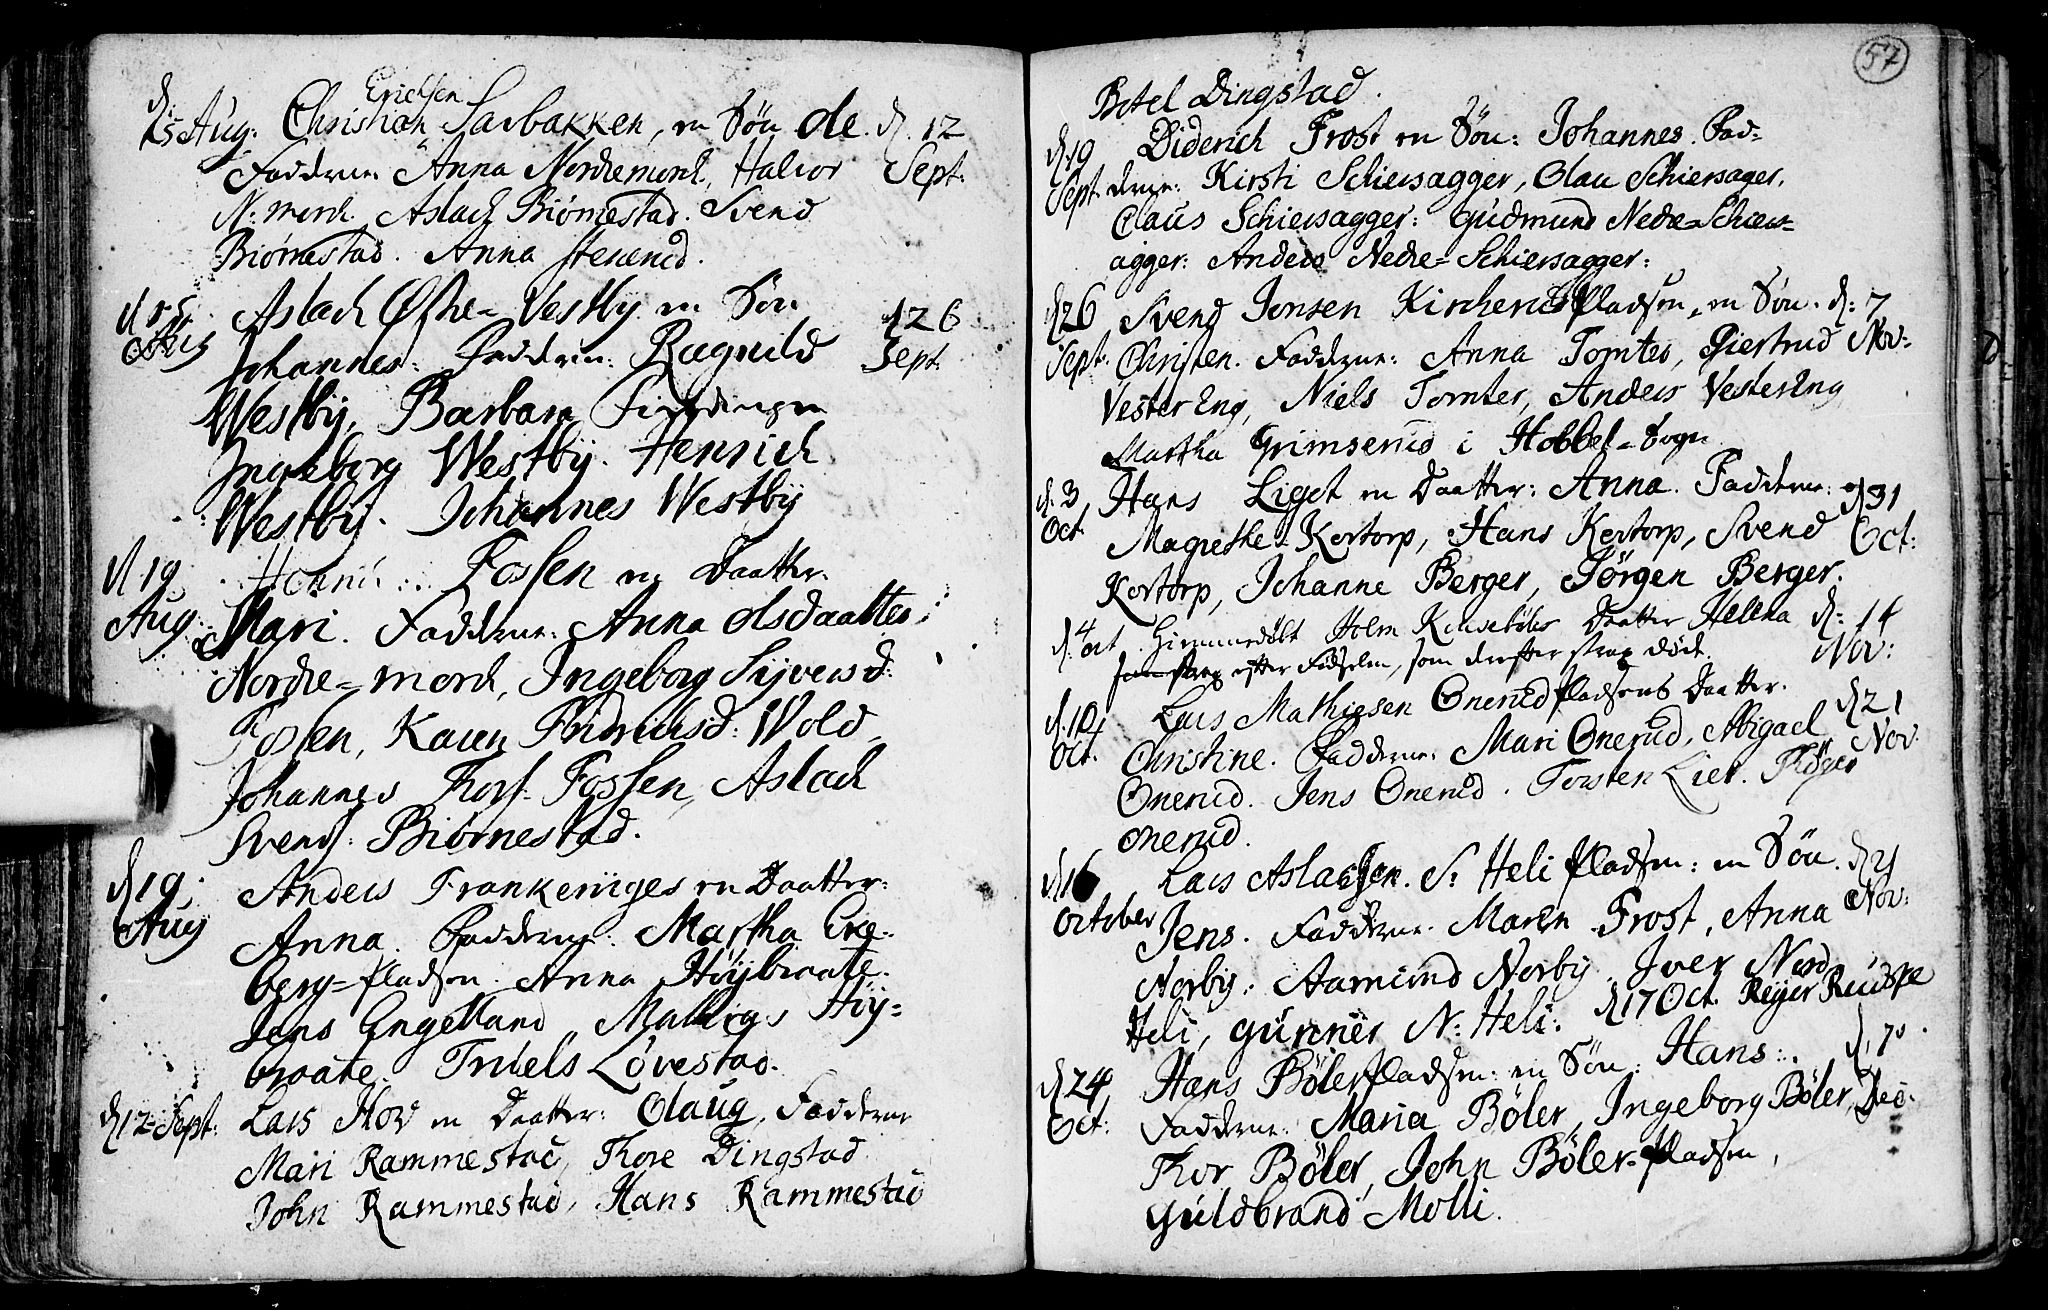 d. 15 Aug: Christian Erichsen Sarbakken, en Sön Ole. d. 12
Faddere. Anna Nordremork, Halvor Sept.
N: mork. Aslach Biörnestad. Svend
Biörnestad. Anna Stenerud.
d. Aug Aslach Östre-Vestby en Sön d 26
Johannes: Faddere: Ragnild Sept.
Westby, Barbara
Ingeborg Westby. Henrich
Westby. Johannes Westby
d 19 Fossen en Daatter.
Aug: Mari. Faddere: Anna Olsdaatter
Nordre-mork, Ingeborg Syversd:
Fossen, Karen Fridrichsd: Wold,
Johannes Thorf: Fossen, Aslach
Svends: Biörnestad.
d 19. Anders Frankeriiges en Daatter:
Aug Anna. Faddere: Martha Exe-
berg-pladsen. Anna Höybraate.
Jens Engelland, Mathias Höy-
braate. Truels Lövestad.
d 12 Sept: Lars Hov en Daatter: Olaug, Faddere
Mari Rammestad, Thore Dingstad
John Rammestad, Hans Rammestad
57
Botel Dingstad.
d. 19 Diderich Frost en Sön: Johannes. Fad-
Sept. dere: Kirsti Schiersagger, Olau Schiersager.
Claus Schiersagger: Gudmund Nedre-Schiers-
agger: Anders Nedre-Schiersagger:
d 26 Svend Jonsen Kircheruds Pladsen, en Sön. d: 7
Sept. Christen. Faddere: Anna Tomter, Giertrud Nov:
VesterEng, Niels Tomter, Anders VesterEng
Martha Grimserud i Hobbel-Sogn
d. 3 Hans Liget en Daatter: Anna. Faddere: d 31
Oct Magrethe Kortorp, Hans Kortorp, Svend Oct:
Kortorp, Johanne Berger, Jörgen Berger.
d. 4 oct. Hiemmedöbt Holm Daatter Helena d: 14
efter Födselen, som derefter strax döde. Nov:
d. 10 Lars Mathiesen Onerud pladsens Daatter. d 21
Oct. Christine. Faddere: Mari Onerud, Abigael Nov.
Onerud. Jens Onerud. Torsten Lier. Thöger
Onerud.
d 16 Lars Aslachsen. N: Heli pladsen: en Sön. d 21
October Jens. Faddere. Maren Frost, Anna Nov:
Norby: Aamund Norby. Iver Nord
Heli, Gunner N: Heli: d 17 Oct. Reyer
d 24 Hans Böler pladsen: en Sön: Hans:.
Oct: Faddere: Maria Böler, Ingeborg Böler, Dec.
Thor Böler, John Böler-pladsen,
Guldbrand Molli.